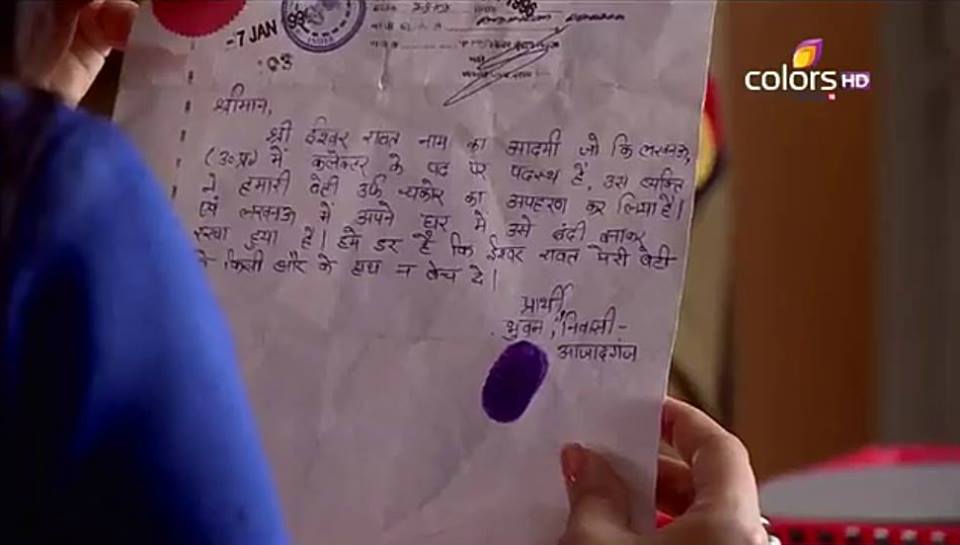 -7 JAN 1996
INDIA
03
colors HD
श्रीमान,
श्री ईश्वर रावत नाम का आदमी जो कि लखनऊ,
(उ०प्र०) में कलेक्टर के पद पर पदस्थ है, उस व्यक्ति
ने हमारी बेटी उर्फ चकोर का अपहरण कर लिया है।
एवं लखनऊ में अपने घर में उसे बंदी बनाकर
रखा हुया है। हमे डर है कि ईश्वर रावत मेरी बेटी
किसी और के हाथ न बेच दे।
प्रार्थी,
भुवन, निवासी-
आजादगंज